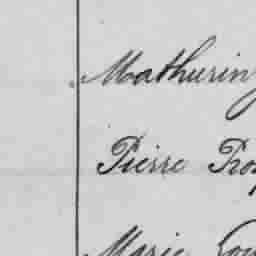 Mathurin
Pierre Pros
Marie Lou